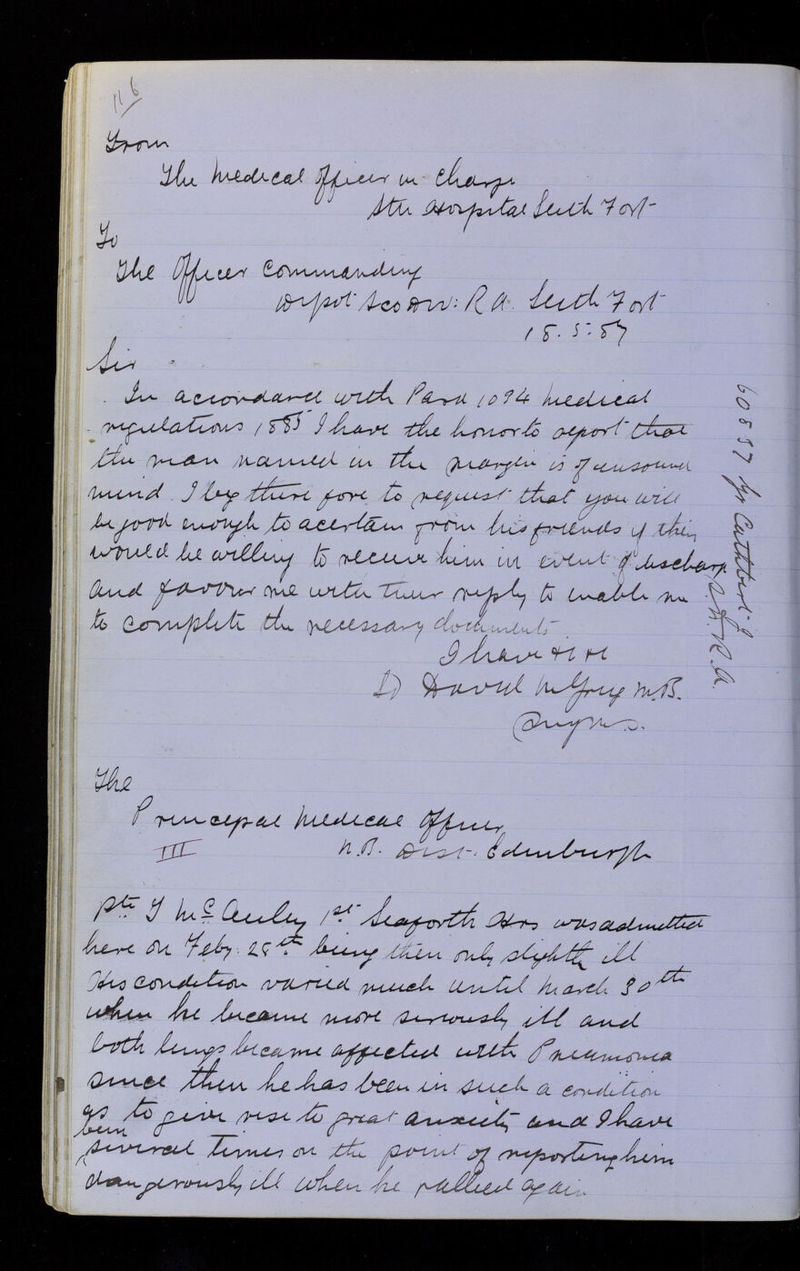 116
From
The Medical Officer in Charge
Stn Hospital Leith Fort
To
The Officer Commanding
Depot Sco Div: R A. Leith Fort
18.5.87
Sir
In accordance with Para 1094 Medical
regulations 1885 I have the honor to report that
the man named in the margin is of unsound
mind. I beg there fore to request that you will
be good enough to acertain from his friends if they
would be willing to receive him in event of discharge
and favour me with their reply to enable me
to complete the necessary documents
I have &c &c
David M.B.
60887 Gr Cuthbert J
S.D. R.A.
The
Principal Medical Officer
III N.B. Dist. Edinburgh
Pte J McAuley 1st Seaforth Hrs was admitted
here on Feby. 28th being then only slightly ill
His condition varied much until March 30th
when he became more seriously ill and
both lungs became affected with Pneumonia
since then he has been in such a condition
as to give rise to great anxiety and I have
been
several times on the point of reporting him
dangerously ill when he rallied again